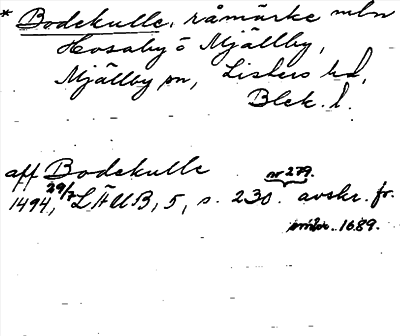 * Bodekulle, råmärke mln
Hosaby o Mjällby,
Mjällby sn, Listers hd,
Blek. l.
aff Bodekulle
nr 279.
1494, 29/7 LÄUB, 5, s. 230. avskr. fr.
omkr. 1689.